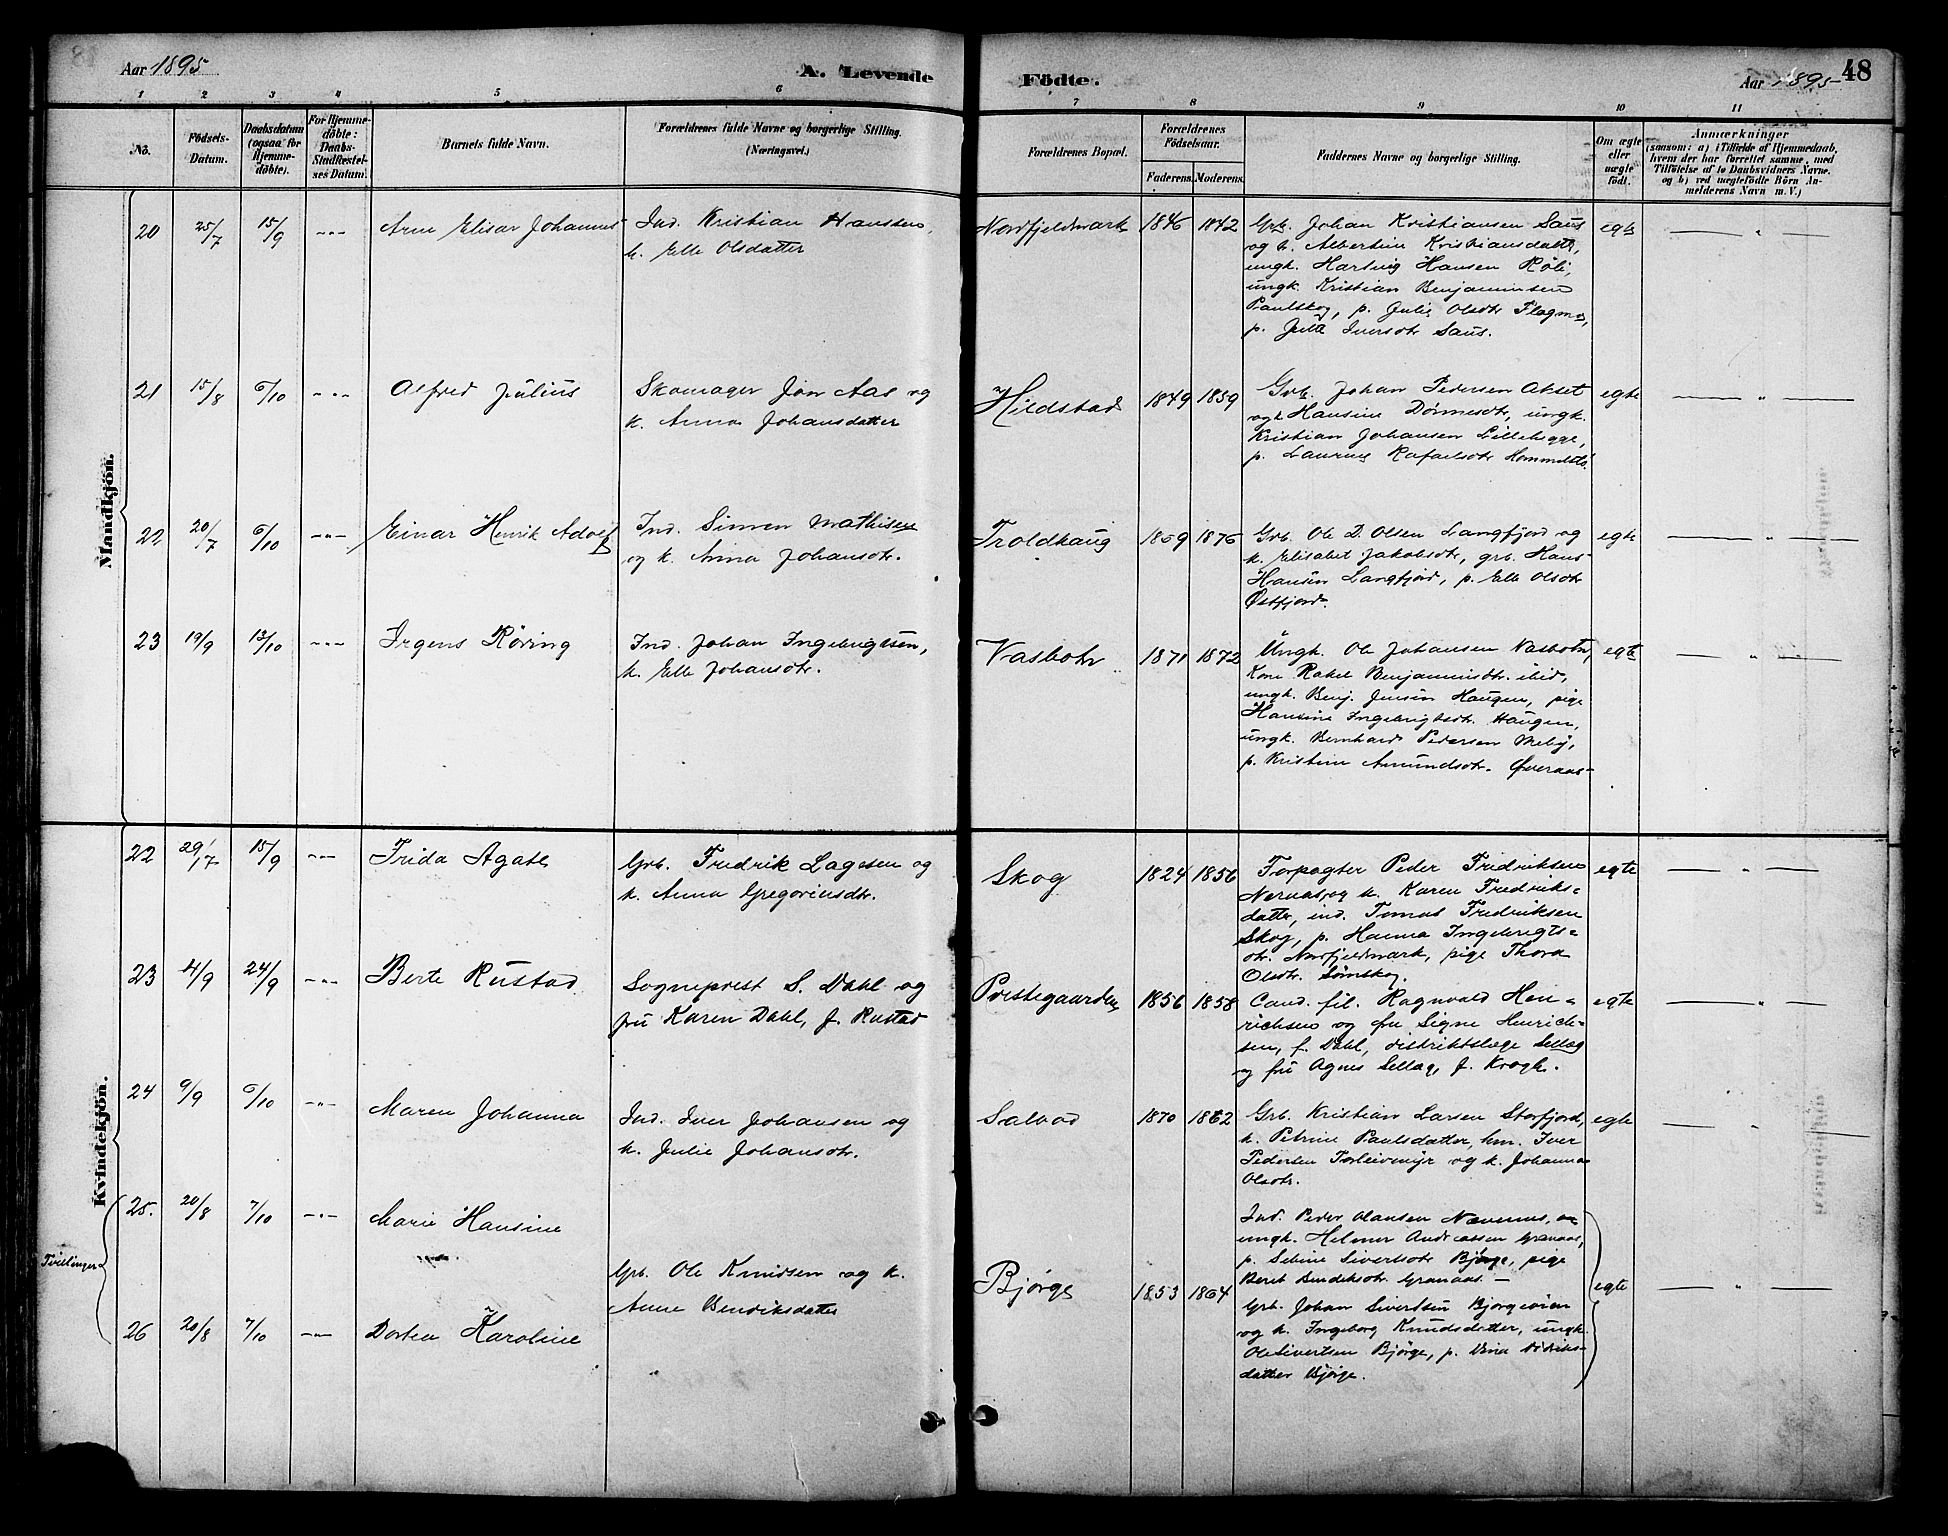 Aar 1895
A. Levende
Födte.
Aar 1895
48
1 2 3 4 5 6 7 8 9 10 11
No.
Födsels-
Datum.
Daabsdatum
(ogsaa for
Hjemme-
döbte).
For Hjemme-
döbte:
Daabs-
Stadfæstel-
ses Datum.
Barnets fulde Navn.
Forældrenes fulde Navne og borgerlige Stilling.
(Næringsvei.)
Forældrenes Bopæl.
Forældrenes
Födselsaar.
Faderens.
Moderens.
Faddernes Navne og borgerlige Stilling.
Om ægte
eller
uægte
födt.
Anmærkninger
(saasom: a) i Tilfælde af Hjemmedaab,
hvem der har forrettet samme, med
Tilföielse af to Daabsvidners Navne,
og b) ved uægtefödte Börn An-
melderens Navn m. V.)
Mandkjön.
20 25/7 15/9 -"- Arne Elisar Johannes
Ind. Kristian Hansten,
k. Elle Olsdatter
Nordfjeldmark 1846 1842
Grb. Johan Kristiansen Saus
og k. Albertine Kristiansdatter,
ungk. Hartvig Hansen Röli,
ungk. Kristian Benjaminsen
Paulskog, p. Julie Olsdtr Flagmo,
p. Julie Iversdtr Saus.
egte — " —
21 15/8 6/10 -"- Alfred Julius
Skomager Jon Aas og
k. Anna Johansdatter
Hildstad 1849 1859
Grb. Johan Pedersen Akset
og k Hansine Dönnesdtr, ungk.
Kristian Johansen Lillehegge,
p. Laurine Rafaelsdtr
egte — " —
22 20/7 6/10 -"- Einar Henrik Adolf
Ind. Simon Mathisen
og k. Anna Johansdtr.
Troldhaug 1869 1875
Grb. Ole D. Olsen Langfjord og
k. Elisabet Jakobsdtr, grb. Hans
Hansen Langfjord, p. Elle Olsdtr
Østfjord.
egte — " —
23 19/9 13/10 -"- Jrgens Röring
Ind. Johan Ingebrigtsen,
k. Elle Johansdtr.
Vasbotn 1871 1872
Ungk. Ole Johansen Vasbotn,
Kone Rakel Benjaminsdtr. ibid,
ungk. Benj. Jensen Haugen, pige
Hansine Ingebrigtsdtr. Haugen,
ungk. Bernhard Pedersen Meby,
p. Kristine Amundsdtr. Øveraas-
egte — " —
Kvindekjön.
22 29/7 15/9 -"- Frida Agate
Grb. Fredrik Lagesen og
k. Anna Gregoriusdtr.
Skog 1824 1856
Forpagter Peder Fredriksen
Nernas, og k. Karen Fredriks=
datter, ind. Tomas Fredriksen
Skog, p. Hanna Ingebrigts=
dtr. Nordfjeldmark, pige Thora
Olsdtr. Sömskog.
egte — " —
23 4/9 24/9 -"- Berte Rustad
Sogneprest S. Dahl og
fru Karen Dahl, f. Rustad
Prestegaarden 1856 1858
Cand. fil. Ragnvald Hen=
richsen og fru Signe Henrich=
sen, f. Dahl, distriktslæge Sellæg
og fru Agnes Sellæg, f. Krogh.
egte — " —
24 9/9 6/10 -"- Maren Johanna
Ind. Iver Johansen og
k. Julie Johansdtr.
Salbod 1870 1862
Grb. Kristian Larsen Storfjord,
k. Petrine Paulsdatter, hm. Iver
Pedersen Torleivmyr og k. Johanna
Olsdtr.
egte — " —
Tvillinger
25. 20/8 7/10 -"- Marie Hansine
Grb. Ole Knudsen og k.
Anne Bendiksdatter
Bjørge 1853 1864
Ind. Peder Olausen
ungk. Helmer Andreassen Granaas,
p. Seline Sivertsdtr Bjørge, pige
Berit Bendiksdtr. Granaas. —
egte — " —
26 20/8 7/10 -"- Dortea Karoline
Grb. Johan Sivertsen Bjørgeøien
og k. Ingeborg Knudsdatter, ungk.
Ole Sivertsen Bjørge, p.
datter Bjørge.